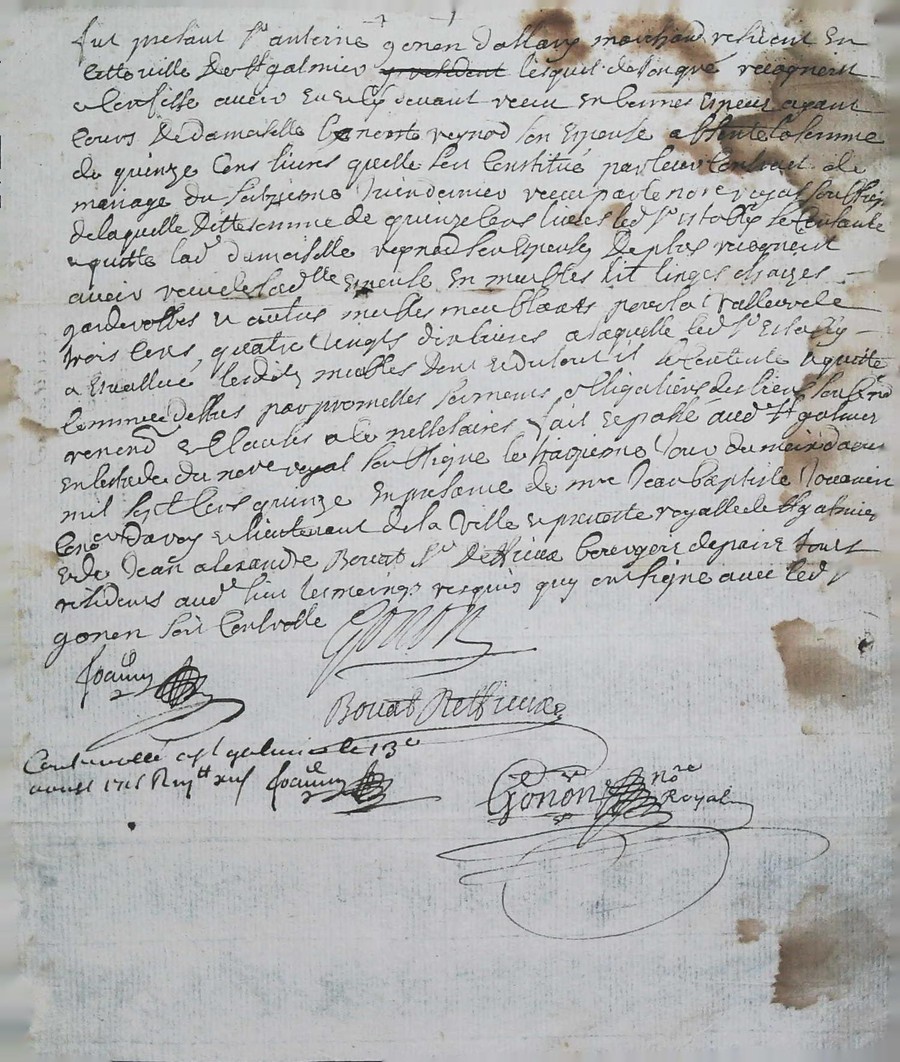 fut présent Sr antoine gonon dallary marchand résident En
Cette ville de St galmier lequel de son gré recognoit
et Confesse avoir Eu et Cy devant receu En bonnes Especes ayant
Cours de damoiselle regnod son Epouse absente la somme
de quinze Cens livres quelle sest Constitué par leur Contract de
mariage du juin dernier receu par le nore royal soussigné
de laquelle ditte somme de quinze Cens livres led Sr se Contante
et quitte lad damoiselle regnod son Epouse De plus recognoit
avoir receu de sad lle Epouse En meubles lit linges chaizes
garderobbes et autres meubles meublants pour la valleur de
trois Cens quatre vingts dix livres a laquelle led Sr
a Evallué lesdits meubles dont et du tout il se Contente et quitte
Comme dessus par promesses serments obligations des biens
renond et Clauses a ce nessessaires fait et passé aud St galmier
En lestude du nore royal soubsigné le traizieme Jour du mois daoust
mil sept Cens quinze En presance de mre Jean baptiste Jouannin
Coner du roy et lieutenant de la Ville et prevosté royalle de St galmier
Et de Jean alexandre Bouat Sr berengere de paris tous
résidents aud lieu tesmoings requis quy ont signé avec led
gonon soit Controllé
Gonon
Joanin
Bouat
Controllé a St galmier le 13e
aoust 1715 Joanin
Gonon nore
Royal